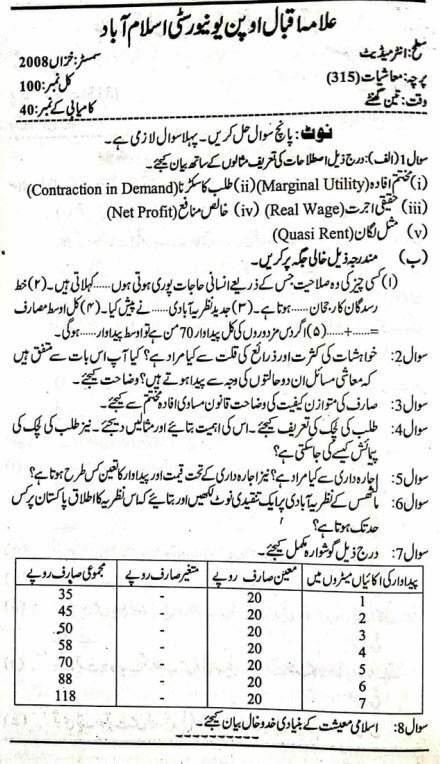 علامہ اقبال اوپن یونیورسٹی اسلام آباد
سطح: انٹرمیڈیٹ سمسٹر: خزاں 2008
پرچہ: معاشیات (315) کل نمبر: 100
وقت: تین گھنٹے کامیابی کے نمبر: 40
نوٹ: پانچ سوال حل کریں۔ پہلا سوال لازمی ہے۔
سوال 1 (الف): درج ذیل اصطلاحات کی تعریف مثالوں کے ساتھ بیان کیجئے۔
(i) مختتم افادہ (Marginal Utility) (ii) طلب کا سکڑنا (Contraction in Demand)
(iii) حقیقی اجرت (Real Wage) (iv) خالص منافع (Net Profit)
(v) مثل لگان (Quasi Rent)
(ب) مندرجہ ذیل خالی جگہ پر کریں۔
(۱) کسی چیز کی وہ صلاحیت جس کے ذریعے انسانی حاجات پوری ہوتی ہوں ...... کہلاتی ہیں۔ (۲) خط
رسد گان کا رجحان ...... ہوتا ہے۔ (۳) جدید نظریہ آبادی ...... نے پیش کیا۔ (۴) کل اوسط مصارف
=......+...... (۵) اگر دس مزدوروں کی کل پیداوار 70 من ہے تو اوسط پیداوار ...... ہوگی۔
سوال 2: خواہشات کی کثرت اور ذرائع کی قلت سے کیا مراد ہے؟ کیا آپ اس بات سے متفق ہیں
کہ معاشی مسائل ان دو حالتوں کی وجہ سے پیدا ہوتے ہیں؟ وضاحت کیجئے۔
سوال 3: صارف کی متوازن کیفیت کی وضاحت قانون مساوی افادہ مختتم سے کیجئے۔
سوال 4: طلب کی لچک کی تعریف کیجئے۔ اس کی اہمیت بتائیے اور مثالیں دیجئے۔ نیز طلب کی لچک کی
پیمائش کیسے کی جاسکتی ہے؟
سوال 5: اجارہ داری سے کیا مراد ہے؟ نیز اجارہ داری کے تحت قیمت اور پیداوار کا تعین کس طرح ہوتا ہے؟
سوال 6: مالتھس کے نظریہ آبادی پر ایک تنقیدی نوٹ لکھیں اور بتائیے کہ اس نظریہ کا اطلاق پاکستان پر کس
حد تک ہوتا ہے؟
سوال 7: درج ذیل گوشوارہ مکمل کیجئے۔
پیداوار کی اکائیاں میٹروں میں معین صارف روپے متغیر صارف روپے مجموعی صارف روپے
1 20 - 35
2 20 - 45
3 20 - 50
4 20 - 58
20 - 70
6 20 - 88
7 20 - 118
سوال 8: اسلامی معیشت کے بنیادی خدوخال بیان کیجئے۔